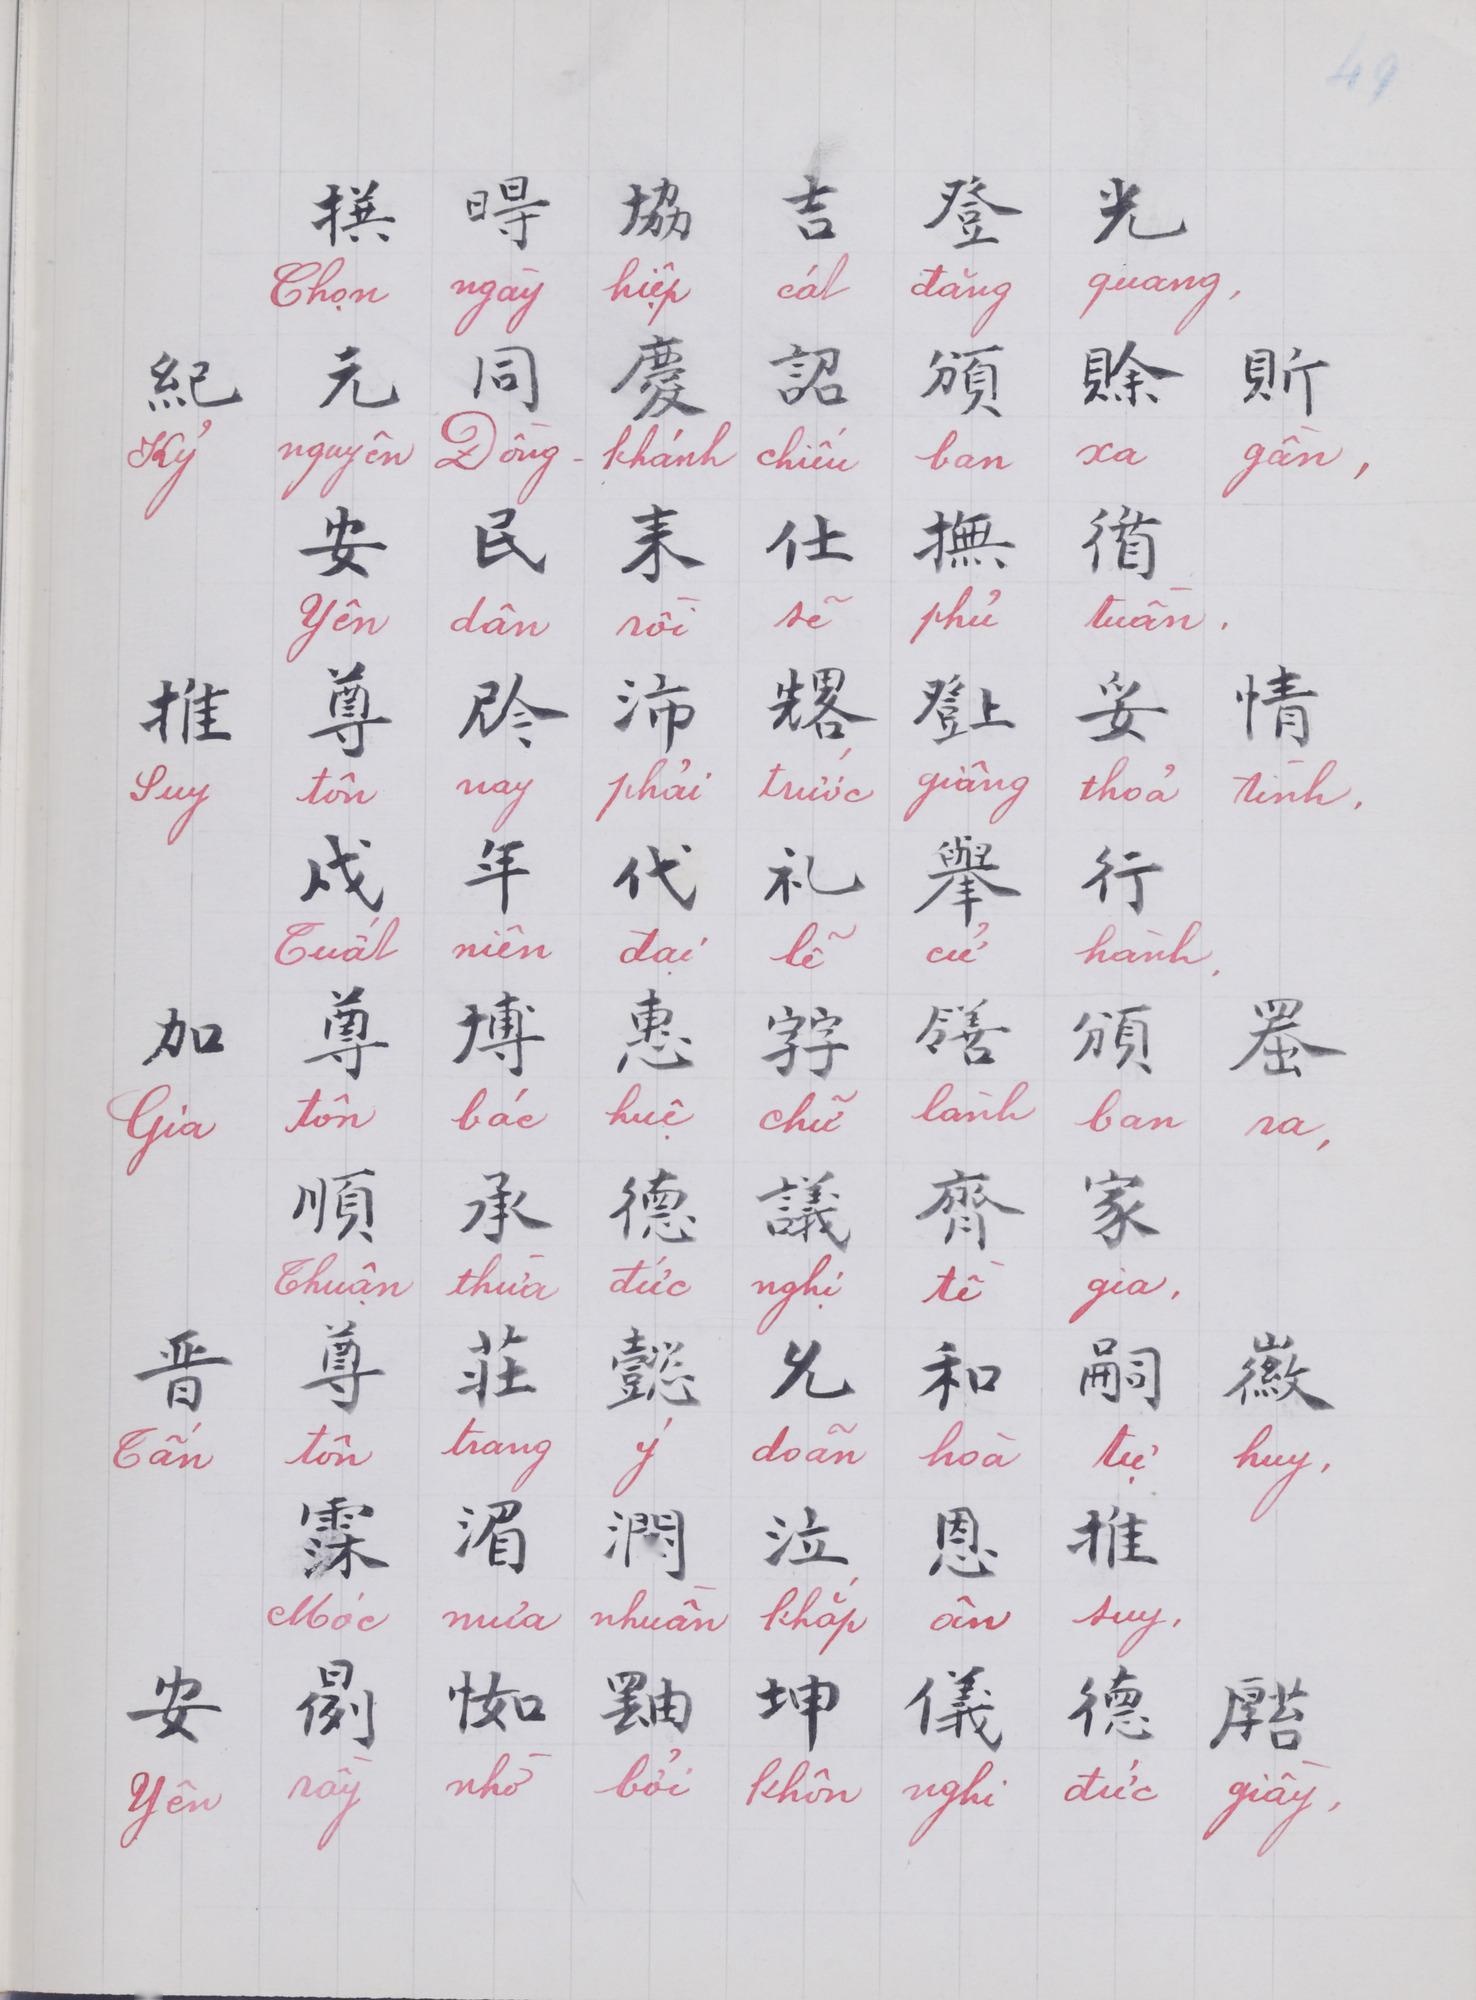 49
撰 㫮 協 吉 登 光
Chọn ngày hiệp cát đăng quang,
紀 元 同 慶 詔 頒 賒 𧵆
Kỷ nguyên Đồng-khánh chiếu ban xa gần,
安 民 耒 仕 撫 循
Yên dân rồi sẽ phủ tuần.
推 尊 沛 妥 情
Suy tôn nay phải trước giâng thoả tình,
戌 年 代 礼 舉 行
Tuất niên đại lễ cử hành,
加 尊 博 惠 𡨸 頒
Gia tôn bác huệ chữ lành ban ra,
順 承 德 議 齊 家
Thuận thừa đức nghị tề gia,
晋 尊 莊 懿 允 和 嗣 徽
Tấn tôn trang ý doãn hoà tự huy,
霂 湄 潤 泣 恩 推
Móc mưa nhuần khắp ân suy,
安 𢘾 坤 儀 德
Yên rầy nhờ bởi khôn nghi đức giầy,